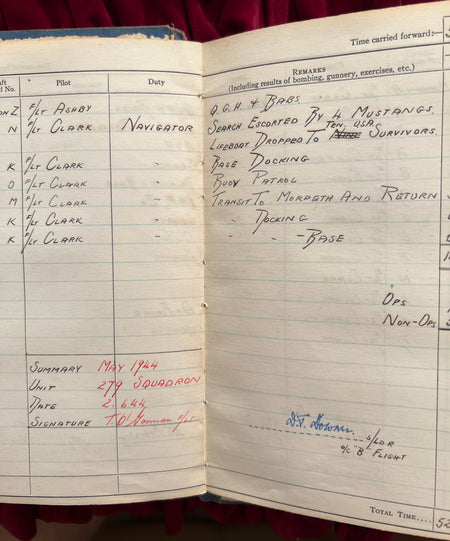 Time carried forward:—
ft
d No.
Pilot
Duty
REMARKS
(Including results of bombing, gunnery, exercises, etc.)
Z F/LT ASHBY A.G.H. & BABS.
N F/LT CLARK NAVIGATOR SEARCH ESCORTED BY 4 MUSTANGS.
TEN, USA.
LIFEBOAT DROPPED TO NINE SURVIVORS.
K F/LT CLARK " BASE DOCKING
O F/LT CLARK " BUOY PATROL
M F/LT CLARK " TRANSIT TO MORPETH AND RETURN
K F/LT CLARK " " DOCKING
K F/LT CLARK " " " " -BASE
OPS
NON-OPS
SUMMARY MAY 1944
UNIT 279 SQUADRON
DATE 2.6.44
SIGNATURE
S/LDR
O/C "B" FLIGHT
TOTAL TIME....